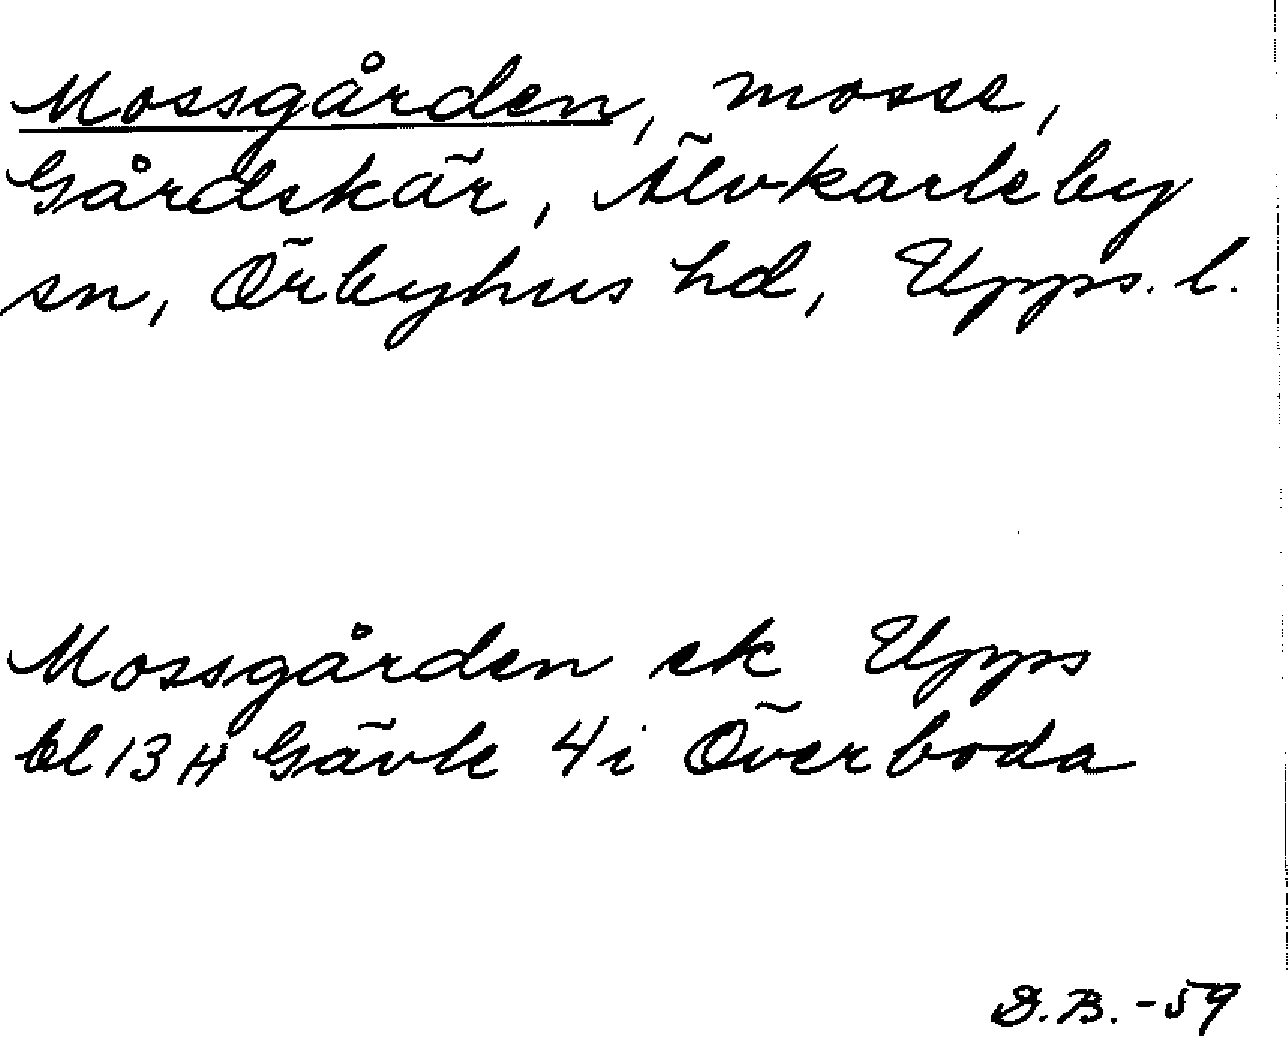 Mossgården, mosse,
Gårdskär, Älvkarleby
sn, Örbyhus hd, Upps. l.
Mossgården ek Upps
bl 13 H Gävle 4i Överboda
D.B. -59